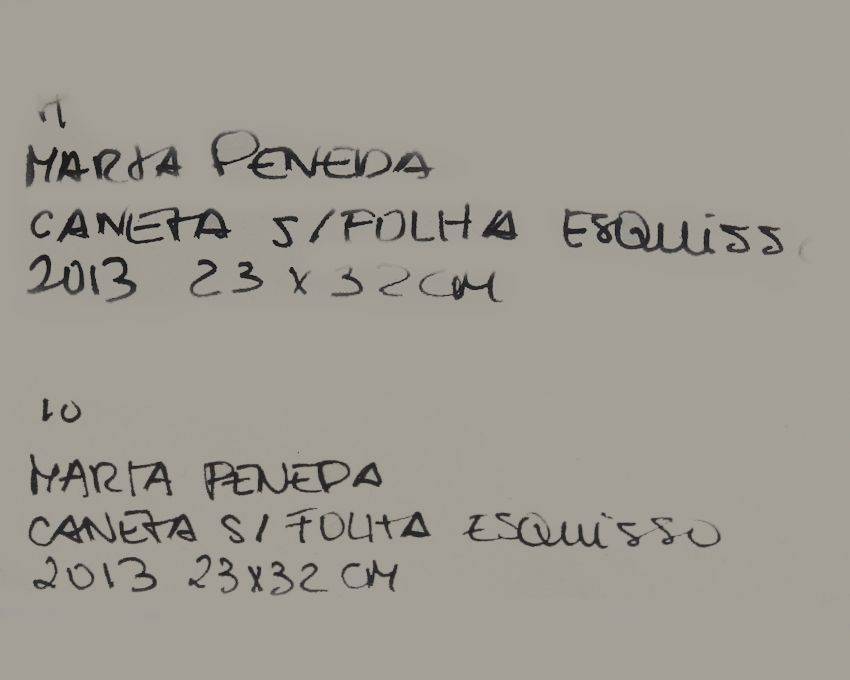 11
MARTA PENEDA
CANETA S/FOLHA ESQUISS
2013 23 x 32 CM
10
MARTA PENEDA
CANETA S/ FOLHA ESQUISSO
2013 23x32 CM